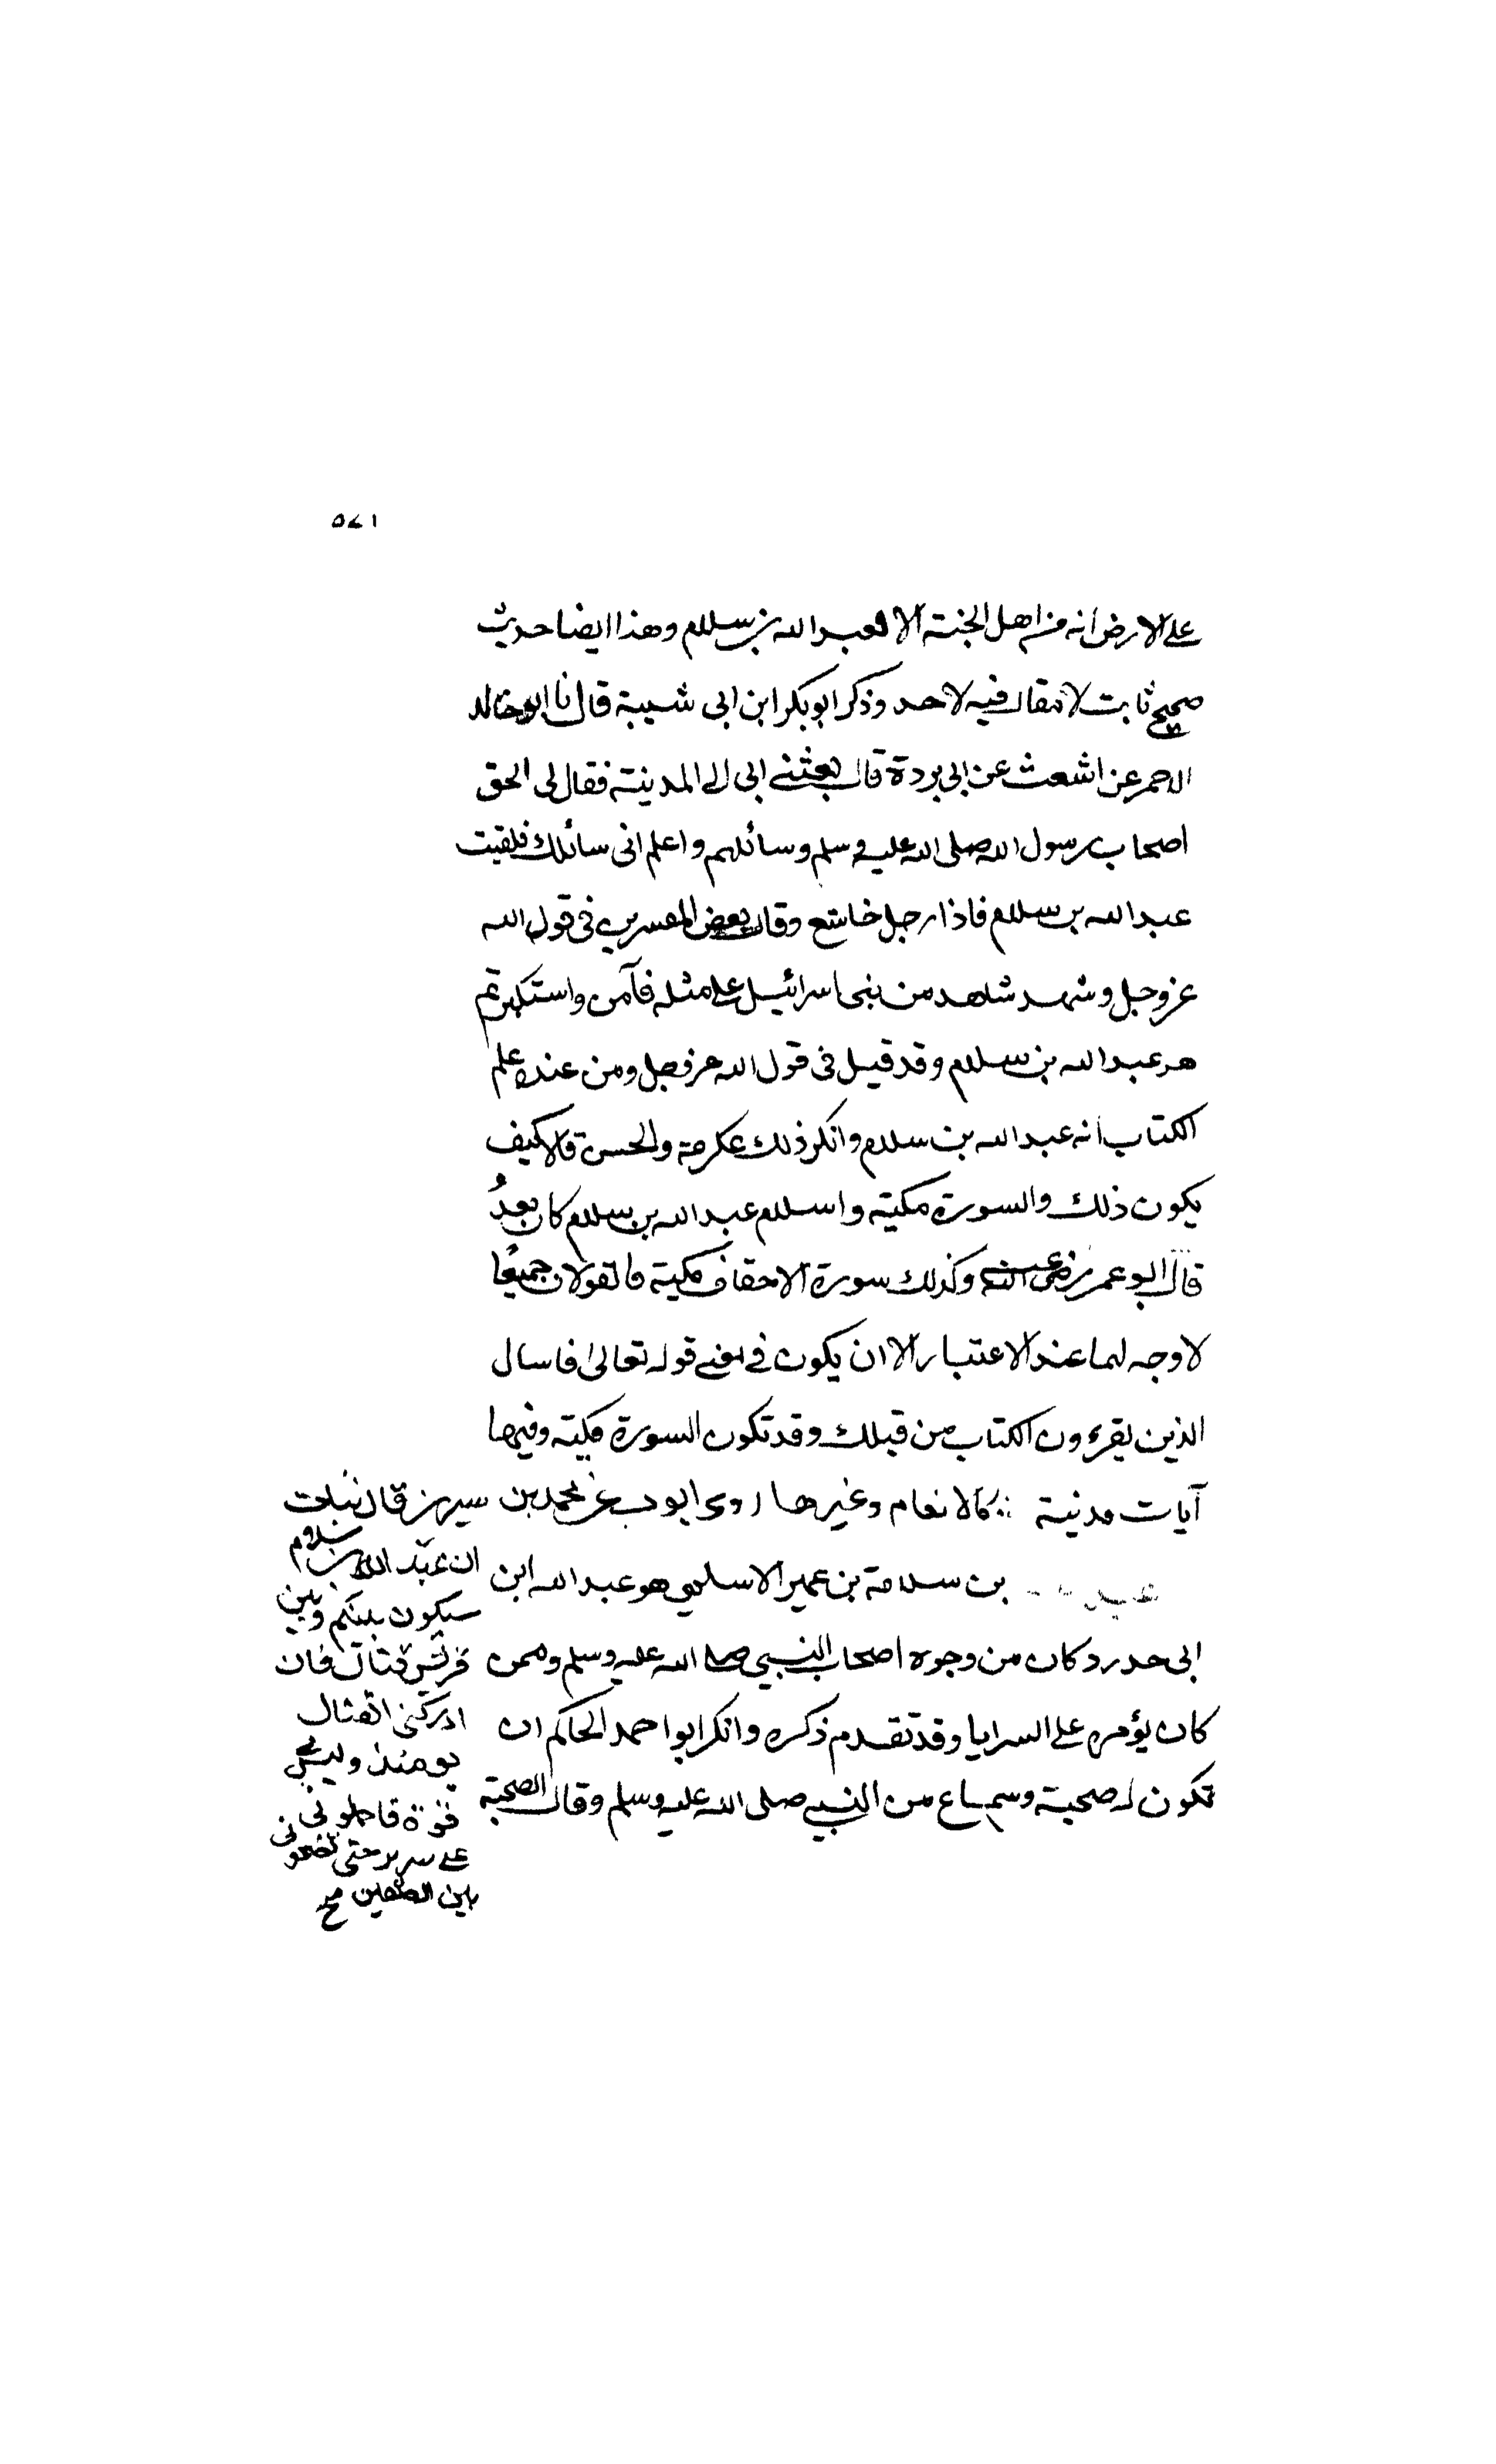 ٥٧١
على الارض انه من اهل الجنة الا لعبد الله بن سلام وهذا ايضا حديث
صحيح ثابت لا مقال فيه لاحد وذكر ابو بكر ابن ابى شيبة قال نا ابو خالد
الاحمر عن اشعث عن ابى بردة قال بعثنى ابى الى المدينة فقال لى الحق
اصحاب رسول الله صلى الله عليه وسلم وسائلهم واعلم انى سائلك فلقيت
عبد الله بن سلام فاذا رجل خاشع وقال بعض المفسرين فى قول الله
عز وجل وشهد شاهد من بنى اسرائيل على مثله فآمن واستكبرتم
هو عبد الله بن سلام وقد قيل فى قول الله عز وجل ومن عنده علم
الكتاب انه عبد الله بن سلام وانكر ذلك عكرمة والحسن قالا كيف
يكون ذلك والسورة مكية واسلام عبد الله بن سلام كان بعدُ
قال ابو عمر رضى الله عنه وكذلك سورة الاحقاف مكية فالقولان جميعًا
لا وجه لهما عند الاعتبار الا ان يكون فى معنى قوله تعالى فاسال
الذين يقرءون الكتاب من قبلك وقد تكون السورة مكية وفيها
آيات مدنية كالانعام وغيرها روى ايوب عن محمد بن سيرين قال نبئت
ان عبد الله بن سلام
سيكون بينكم وبين
قريش قتال فان
ادركنى القتال
يومئذ وليس بى
قوة فاحملونى
على سرير حتى تضعونى
بين الصفين صح
عبد بن سلامة بن عمير الاسلمى هو عبد الله ابن
ابى حدرد كان من وجوه اصحاب النبى صلى الله عليه وسلم وممن
كان يؤمره على السرايا وقد تقدم ذكره وانكر ابو احمد الحاكم ان
تكون له صحبة وسماع من النبى صلى الله عليه وسلم وقال الصحبة